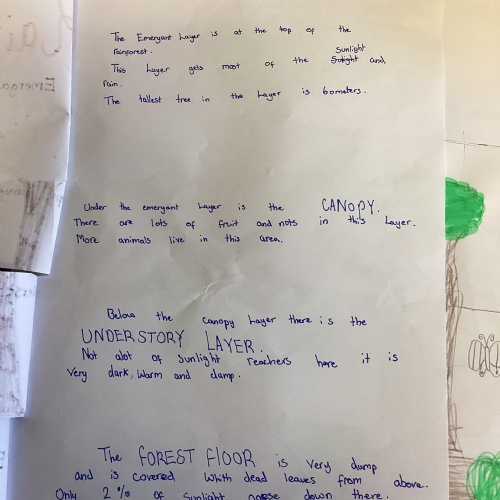 The Emergant Layer is at the top of the
rainforest.
This Layer gets most of the Sunlight and
rain.
The tallest tree in the Layer is 60meters.
Under the emergant Layer is the CANOPY.
There are lots of fruit and nuts in this Layer.
More animals live in this area.
Below the canopy Layer there is the
UNDERSTORY LAYER.
Not alot of Sunlight reachers here it is
very dark, warm and damp.
The FOREST FlOOR is very damp
and is covered whith dead leaves from above.
Only 2% of Sunlight down there.